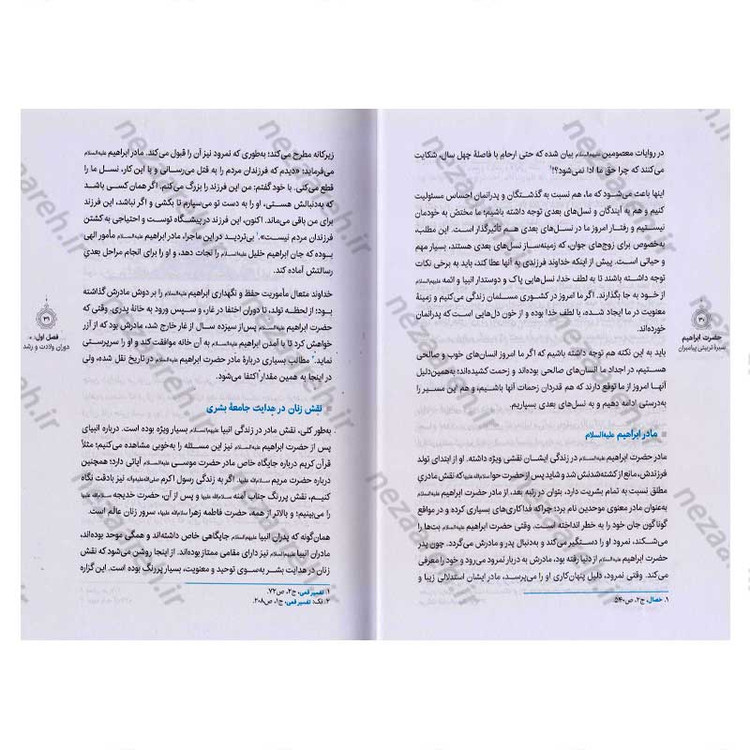 در روایات معصومین علیهم‌السلام بیان شده که حتی ارحام با فاصلهٔ چهل سال، شکایت
می‌کنند که چرا حق ما ادا نمی‌شود؟!¹
اینها باعث می‌شود که ما، هم نسبت به گذشتگان و پدرانمان احساس مسئولیت
کنیم و هم به آیندگان و نسل‌های بعدی توجه داشته باشیم؛ ما مختص به خودمان
نیستیم و رفتار امروز ما در نسل‌های بعدی هم تأثیرگذار است. این مطلب،
به‌خصوص برای زوج‌های جوان، که زمینه‌ساز نسل‌های بعدی هستند، بسیار مهم
و حیاتی است. پیش از اینکه خداوند فرزندی به آنها عطا کند، باید به برخی نکات
توجه داشته باشند تا به لطف خدا، نسل‌هایی پاک و دوستدار انبیا و ائمه علیهم‌السلام
از خود به جا بگذارند. اگر ما امروز در کشوری مسلمان زندگی می‌کنیم و زمینهٔ
معنویت در ما ایجاد شده، با لطف خدا بوده و از خون دل‌هایی است که پدرانمان
خورده‌اند.
باید به این نکته هم توجه داشته باشیم که اگر ما امروز انسان‌های خوب و صالحی
هستیم، در اجداد ما انسان‌های صالحی بوده‌اند و زحمت کشیده‌اند؛ به‌همین‌دلیل
آنها امروز از ما توقع دارند که هم قدردان زحمات آنها باشیم، و هم این مسیر را
به‌درستی ادامه دهیم و به نسل‌های بعدی بسپاریم.
مادر ابراهیم علیه‌السلام
مادر حضرت ابراهیم علیه‌السلام در زندگی ایشان نقشی ویژه داشته. او از ابتدای تولد
فرزندش، مانع از کشته‌شدنش شد و شاید پس از حضرت حوا سلام‌الله علیها که نقش مادری
مطلق نسبت به تمام بشریت دارد، بتوان در رتبه بعد، از مادر حضرت ابراهیم علیه‌السلام
به‌عنوان مادر معنوی موحدین نام برد؛ چراکه فداکاری‌های بسیاری کرده و در مواقع
گوناگون جان خود را به خطر انداخته است. وقتی حضرت ابراهیم علیه‌السلام بت‌ها را
می‌شکند، نمرود او را دستگیر می‌کند و به‌دنبال پدر و مادرش می‌گردد. چون پدر
حضرت ابراهیم علیه‌السلام از دنیا رفته بود، مادرش به دربار نمرود می‌رود و خود را معرفی
می‌کند. وقتی نمرود، دلیل پنهان‌کاری او را می‌پرسد، مادر ایشان استدلالی زیبا و
۱. خصال، ج۲، ص۵۴۰.
۳۰
حضرت ابراهیم
سیرهٔ تربیتی پیامبران
زیرکانه مطرح می‌کند؛ به‌طوری که نمرود نیز آن را قبول می‌کند. مادر ابراهیم علیه‌السلام
می‌فرماید: «دیدم که فرزندان مردم را به قتل می‌رسانی و با این کار، نسل ما را
قطع می‌کنی. با خود گفتم: من این فرزند را بزرگ می‌کنم. اگر همان کسی باشد
که به‌دنبالش هستی، او را به دست تو می‌سپارم تا بکشی و اگر نباشد، این فرزند
برای من باقی می‌ماند. اکنون، این فرزند در پیشگاه توست و احتیاجی به کشتن
فرزندان مردم نیست».¹ بی‌تردید در این ماجرا، مادر ابراهیم علیه‌السلام را مأمور الهی
بوده که جان ابراهیم خلیل علیه‌السلام را نجات دهد، و او را برای انجام مراحل بعدی
رسالتش آماده کند.
خداوند متعال مأموریت حفظ و نگهداری ابراهیم علیه‌السلام را بر دوش مادرش گذاشته
بود؛ از لحظه تولد، تا دوران اختفا در غار، و سپس ورود به خانهٔ پدری. وقتی که
حضرت ابراهیم علیه‌السلام پس از سیزده سال از غار خارج شد، مادرش بود که از آزر
خواهش کرد تا با آمدن ابراهیم علیه‌السلام به آن خانه موافقت کند و او را سرپرستی
نماید.² مطالب بسیاری دربارهٔ مادر حضرت ابراهیم علیه‌السلام در تاریخ نقل شده، ولی
در اینجا به همین مقدار اکتفا می‌شود.
نقش زنان در هدایت جامعهٔ بشری
به‌طور کلی، نقش مادر در زندگی انبیا علیهم‌السلام بسیار ویژه بوده است. درباره انبیای
پس از حضرت ابراهیم علیه‌السلام نیز این مسئله را به‌خوبی مشاهده می‌کنیم؛ مثلاً
قرآن کریم درباره جایگاه خاص مادر حضرت موسی علیه‌السلام آیاتی دارد؛ همچنین
درباره حضرت مریم سلام‌الله علیها. اگر به زندگی رسول اکرم صلی‌الله‌علیه‌وآله نیز بادقت نگاه
کنیم، نقش پررنگ جناب آمنه سلام‌الله علیها و پس از آن، حضرت خدیجه سلام‌الله علیها
را می‌بینیم؛ و بالاتر از همه، حضرت فاطمه زهرا سلام‌الله علیها، سرور زنان عالم است.
همان‌گونه که پدران انبیا علیهم‌السلام جایگاهی خاص داشته‌اند و همگی موحد بوده‌اند،
مادران انبیا علیهم‌السلام نیز دارای مقامی ممتاز بوده‌اند. از اینجا روشن می‌شود که نقش
زنان در هدایت بشر به‌سوی توحید و معنویت، بسیار پررنگ بوده است. این گزاره
۱. تفسیر قمی، ج۲، ص۷۲.
۲. نک: تفسیر قمی، ج۱، ص۲۰۸.
۳۱
فصل اول:
دوران ولادت و رشد
nezaareh.ir